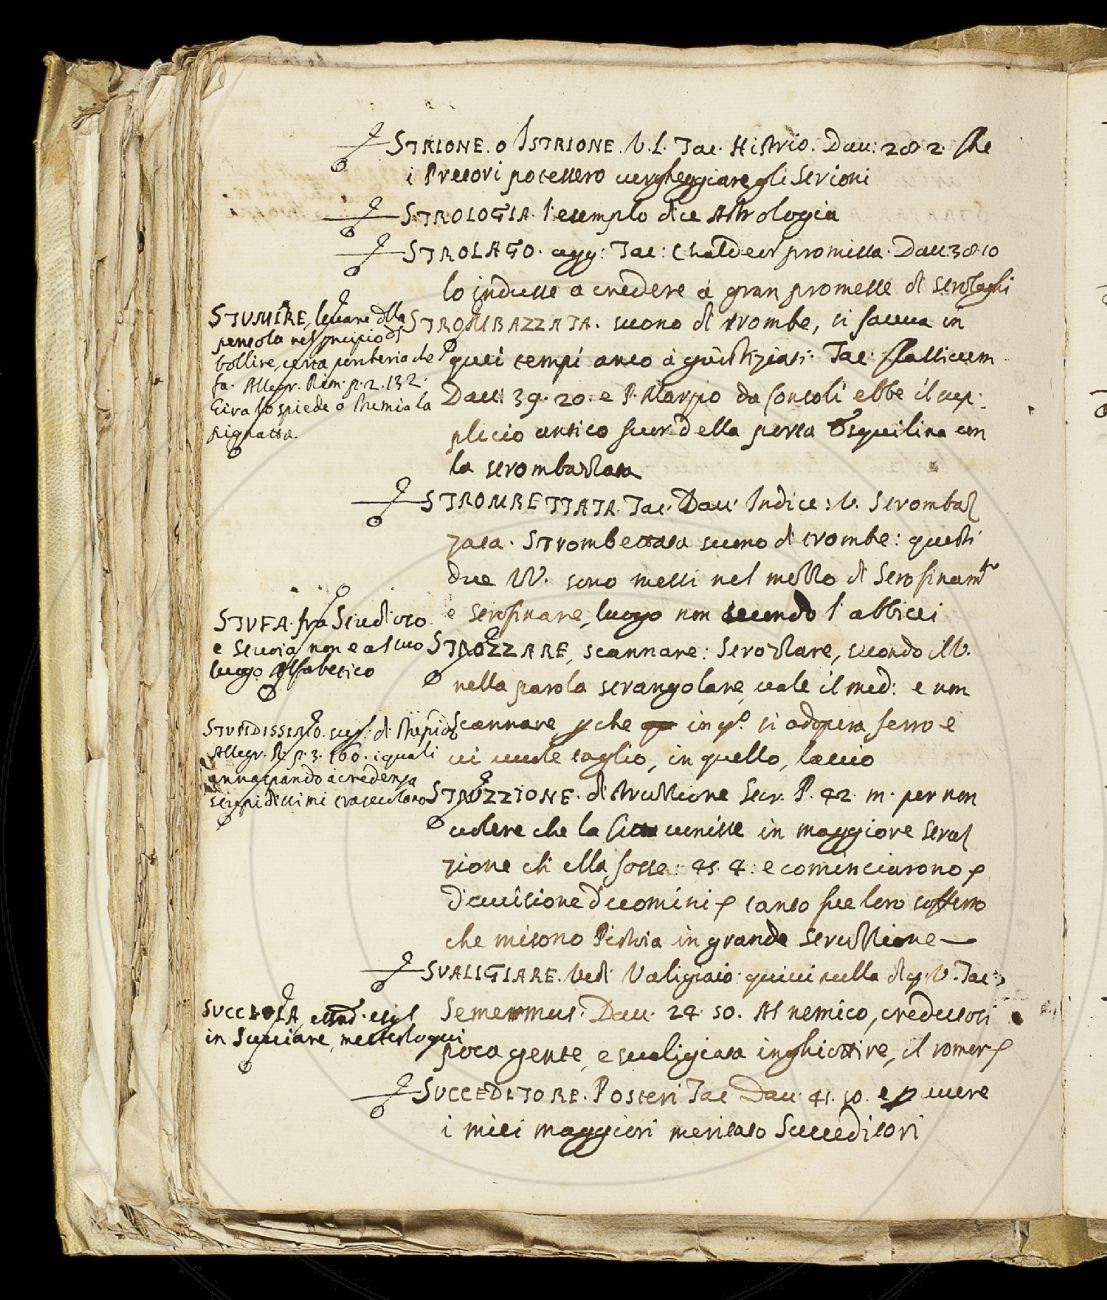 STRIONE. o ISTRIONE. V. L. Tac. Histrio. Dav: 282. che
i Pretori potessero vergheggiare gli Strioni
STROLOGIA. l'esemplo dice Astrologia
STROLAGO. agg: Tac: Chaldeor promissa. Dav: 38 10
lo indusse a credere a gran promesse di strolaghi
STROMBAZZATA. suono di trombe, si faceva in
quei tempi anco a giustiziati: Tac:
Dav: 39. 20. e P. Marzio da Consoli ebbe il sup:
plicio antico fuor della porta Esquilina con
la strombazzata
STROMBETTATA. Tac. Dav. Indice: V. Strombaz
zata. Strombettata suono di trombe: questi
due VV. sono messi nel mezzo di Strofinamto
e strofinare, luogo non secondo l'abbicci
STROZZARE, scannare: Strozzare, secondo il V.
nella parola strangolare, vale il med: e non
scannare p che in qo. si adopera ferro e
vi vuole taglio, in quello, laccio
STRUZZIONE. distruzzione Stor. P. 42. m. per non
volere che la Città venisse in maggiore struz
zione ch'ella fosse: 45. 4: e cominciarono p
divisione d'uomini p tanto fue loro
che misono Pistoia in grande struzzione
SVALIGIARE. Vedi Valigiaio: quivi nulla di q. V. Tac:
Semermus. Dav. 24. 50. Al nemico, credutosi
poca gente, e svaligiata inghiottire, il romor p
SUCCEDITORE. Posteri Tac Dav 41. 10. e p avere
i miei maggiori meritato Succeditori
STUMIRE, levare dlla
pentola nel prcipio di
bollire, certa porcheria che
fa. Allegr. Rim. p. 2. 132.
Gira lo spiede o stumia la
pignatta.
STUFA. fra Studioso
e Stuoia, non è a suo
luogo Alfabetico
STUPIDISSIMO. sup. di Stupido
Allegr. R. p. 3. 160. i quali
annaspando a credenza
stupidissimi trasecolano
SUCCHIA,
in Succiare, mettesi qui